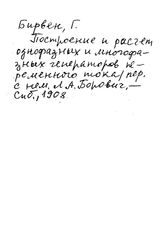 Бирвен, Г.
Построение и расчет
однофазных и многофа-
зных генераторов пе-
ременного тока/пер.
с нем. Л.А.Борович,—
Спб., 1908